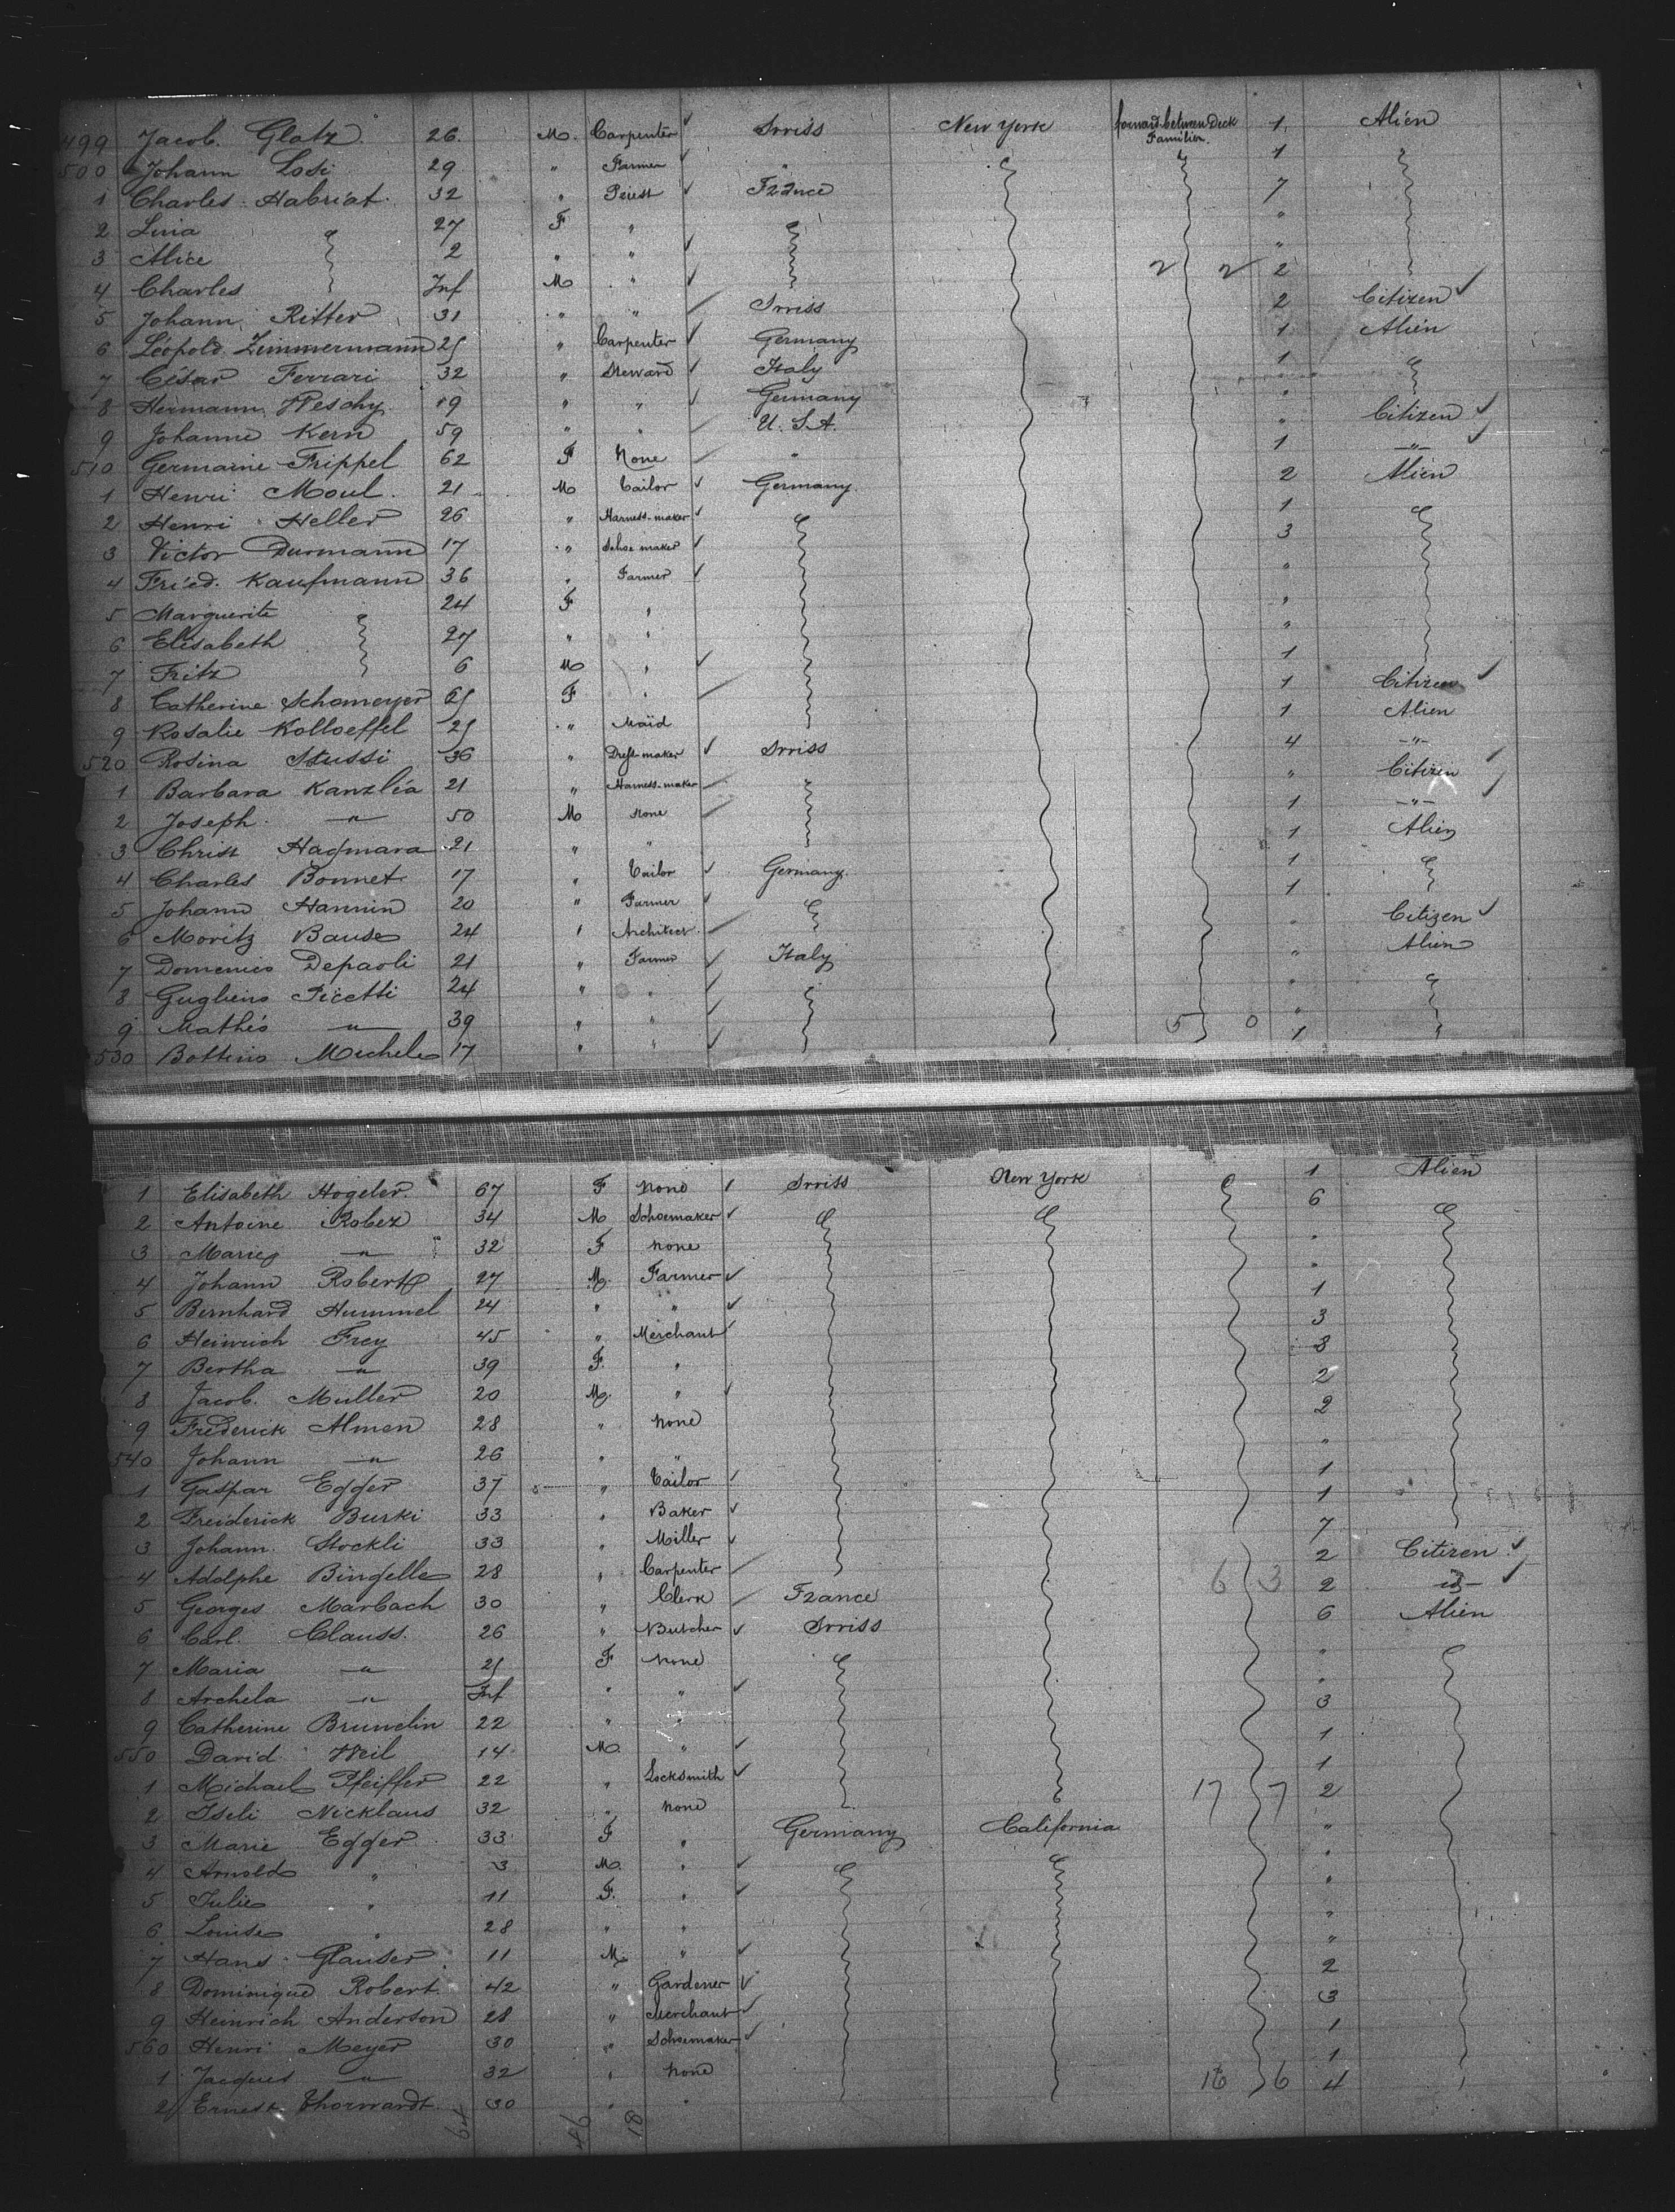 499 Jacob. Glatz. 26. M. Carpenter Swiss New York forward between Deck Familien. 1. Alien
500 Johann Losi 29 " Farmer " 1
1 Charles Habriat. 32 " Priest France 7
2 Lina 27 F " "
3 Alice 2 " " "
4 Charles Inf M " 2 2 2
5 Johann Ritter 31 " " Swiss 2 Citizen
6 Léopold Zimmermann 25 " Carpenter Germany 1 Alien
7 César Ferrari 32 " Steward Italy 1
8 Hermann Weschy. 19 " " Germany "
9 Johanne Kern 59 " " U.S.A. " Citizen
510 Germaine Frippel 62 F None " 1 -"-
1 Henri Moul. 21 M Tailor Germany 2 Alien
2 Henri Heller 26 " Harness-maker 1
3 Victor Durmann 17 " Schoe maker 3
4 Fried. Kaufmann 36 " Farmer "
5 Marguerite 24 F " "
6 Elisabeth 27 " " "
7 Fritz 6 M " 1
8 Catherine Schomeyer 65 F " 1 Citizen
9 Rosalie Kolloeffel 25 " Maid 1 Alien
520 Rosina Stussi 36 " Dress maker Swiss 4 -"-
1 Barbara Kanzlia 21 " Harness-maker " Citizen
2 Joseph -"- 50 M None 1 -"-
3 Christ Hagmara 21 " " 1 Alien
4 Charles Bonnet 17 " Tailor Germany. 1
5 Johann Hannin 20 " Farmer 1
6 Moritz Bause 24 " Architect. " Citizen
7 Domenico Depaoli 21 " Farmer Italy " Alien
8 Guglieno Picetti 24 " " "
9 Mathéo -"- 39 " " 5 0 "
530 Bottino Michele 17 " " 1
1 Elisabeth Hogeler. 67 F None Swiss New York 1 Alien
2 Antoine Robez 34 M Schoemaker 6
3 Marie -"- 32 F none "
4 Johann Robert 27 M. Farmer "
5 Bernhard Hummel 24 " " 1
6 Heinrich Frey 45 " Merchant 3
7 Bertha -"- 39 F. " 3
8 Jacob. Muller 20 M. " 2
9 Frederick Almen 28 " none 2
540 Johann -"- 26 " " "
1 Gaspar Egger 37 " Tailor 1
2 Freiderick Burki 33 " Baker 1
3 Johann. Stockli 33 " Miller 7
4 Adolphe Bingelle 28 " Carpenter 2 Citizen
5 Georges Marbach 30 " Clerk France 6 3 2 id-
6 Carl. Clauss. 26 " Butcher Swiss 6 Alien
7 Maria -"- 25 F none "
8 Archela -"- Inf " " "
9 Catherine Brunclin 22 " " 3
550 David. Weil 14 M. " 1
1 Michael Pfeiffer 22 " Locksmith 1
2 Iseli Nicklaus 32 " none 17 7 2
3 Marie Egger 33 F " Germany California "
4 Arnold " 3 M. " "
5 Julie " 11 F. " "
6 Louise " 28 " " "
7 Hans Glauser 11 M. " "
8 Dominique Robert. 42 " Gardener 2
9 Heinrich Anderson 28 " Merchant 3
560 Henri Meyer 30 " Schoemaker 1
1 Jacques -"- 32 " none 1
2 Ernest Thorwardt. 30 " " 16 6 4
64 46 18